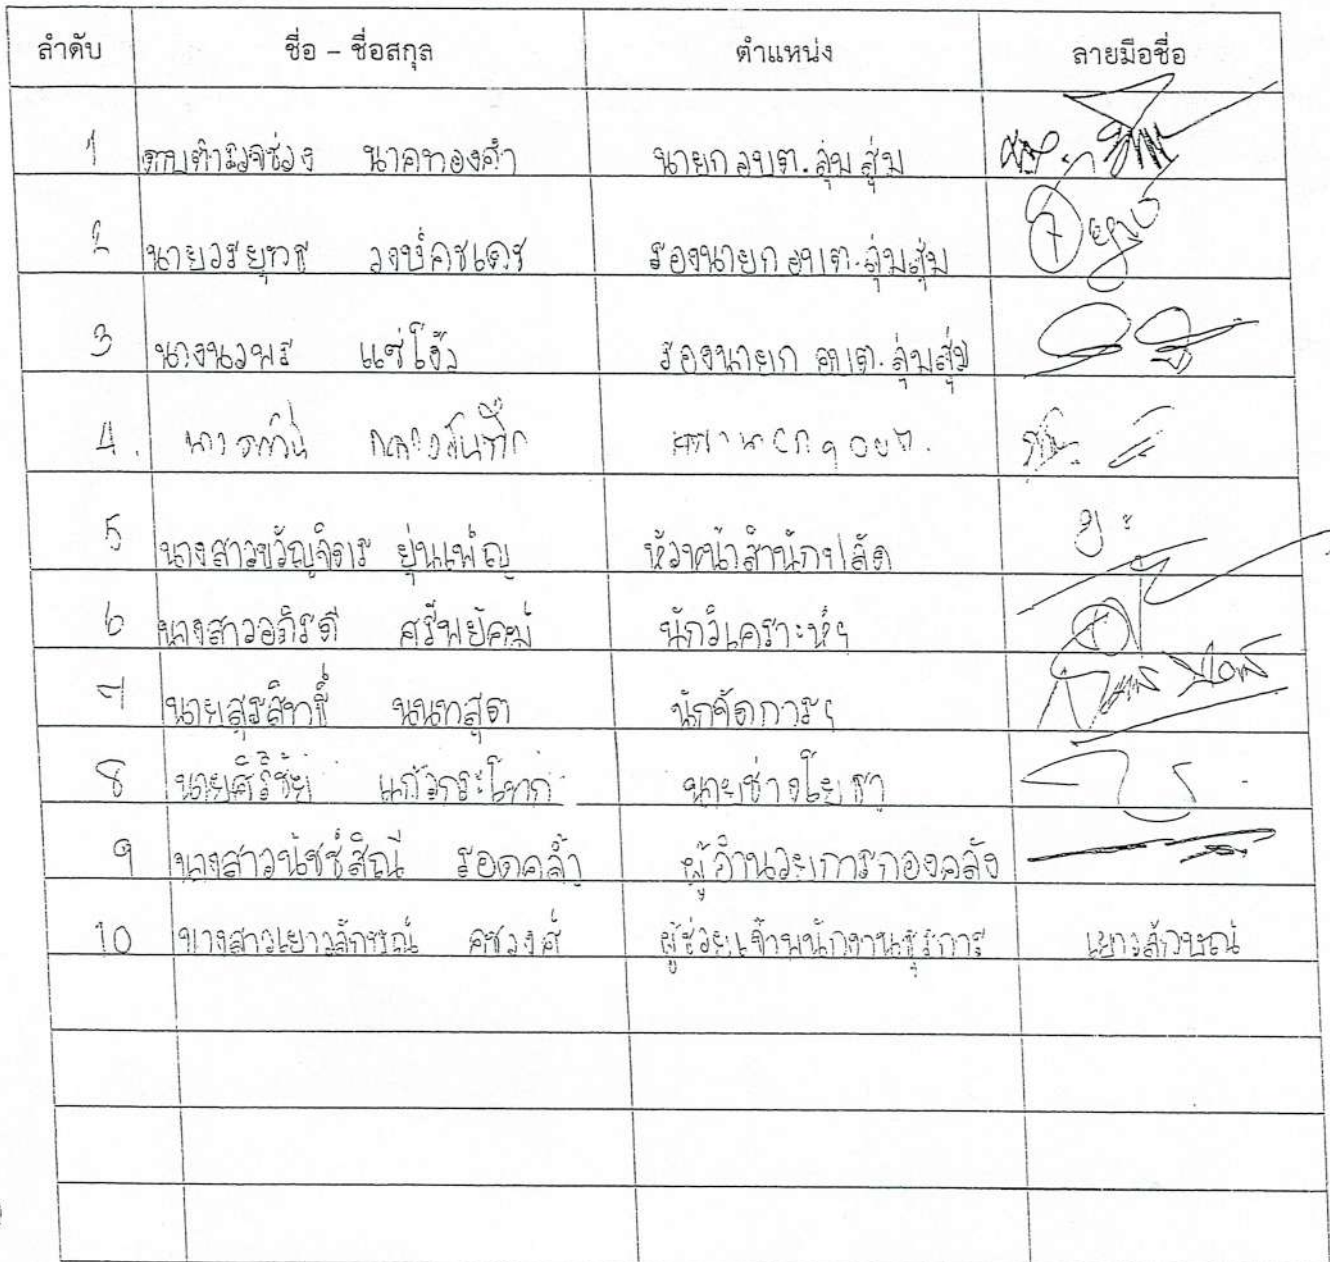 ลำดับ ชื่อ – ชื่อสกุล ตำแหน่ง ลายมือชื่อ
1 ดาบตำรวจช่วง นาคทองคำ นายก อบต.ลุ่มสุ่ม
2 นายวรยุทธ วงษ์คชเดช รองนายก อบต.ลุ่มสุ่ม
3 นางนวพร แซ่โง้ว รองนายก อบต.ลุ่มสุ่ม
4.
5 นางสาวขวัญจิตร ยุ่นเพ็ญ หัวหน้าสำนักปลัด
6 นางสาวอภิรดี ศรีพยัคฆ์ นักวิเคราะห์ฯ
7 นายสุรสิทธิ์ นนทสุต นักจัดการฯ
8 นายศิริชัย แก้วกระโทก นายช่างโยธา
9 นางสาวนัชช์สิณี รอดคล้ำ ผู้อำนวยการกองคลัง
10 นางสาวเยาวลักษณ์ คชวงศ์ ผู้ช่วยเจ้าพนักงานธุรการ เยาวลักษณ์